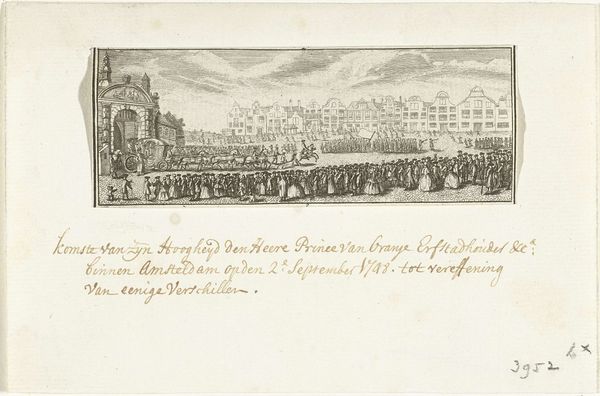 komste van zyn Hoogheyd den Heere Prince van Oranje Erfstadhouder &c.ª
binnen Amsteldam op den 2.ª September 1748. tot vereffening
van eenige Verschillen.
3952